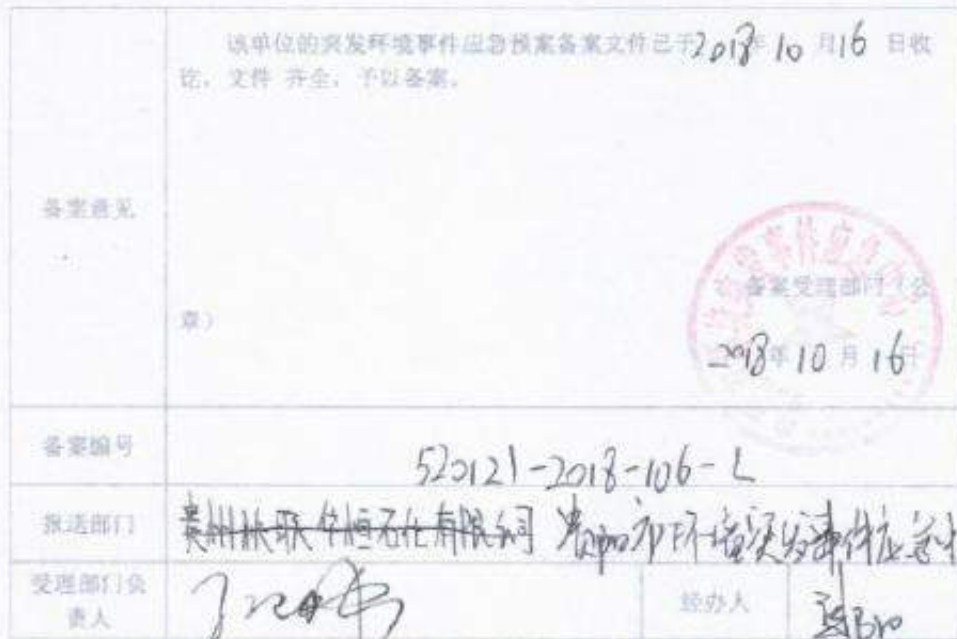 该单位的突发环境事件应急预案备案文件已于2018年10月16日收
讫，文件 齐全，予以备案。
备案意见
备案受理部门（公
章）
2018年10月16日
备案编号
520121-2018-106-L
报送部门
贵州 联 恒石化有限公司 贵阳市环境突发事件应急
受理部门负
责人
经办人